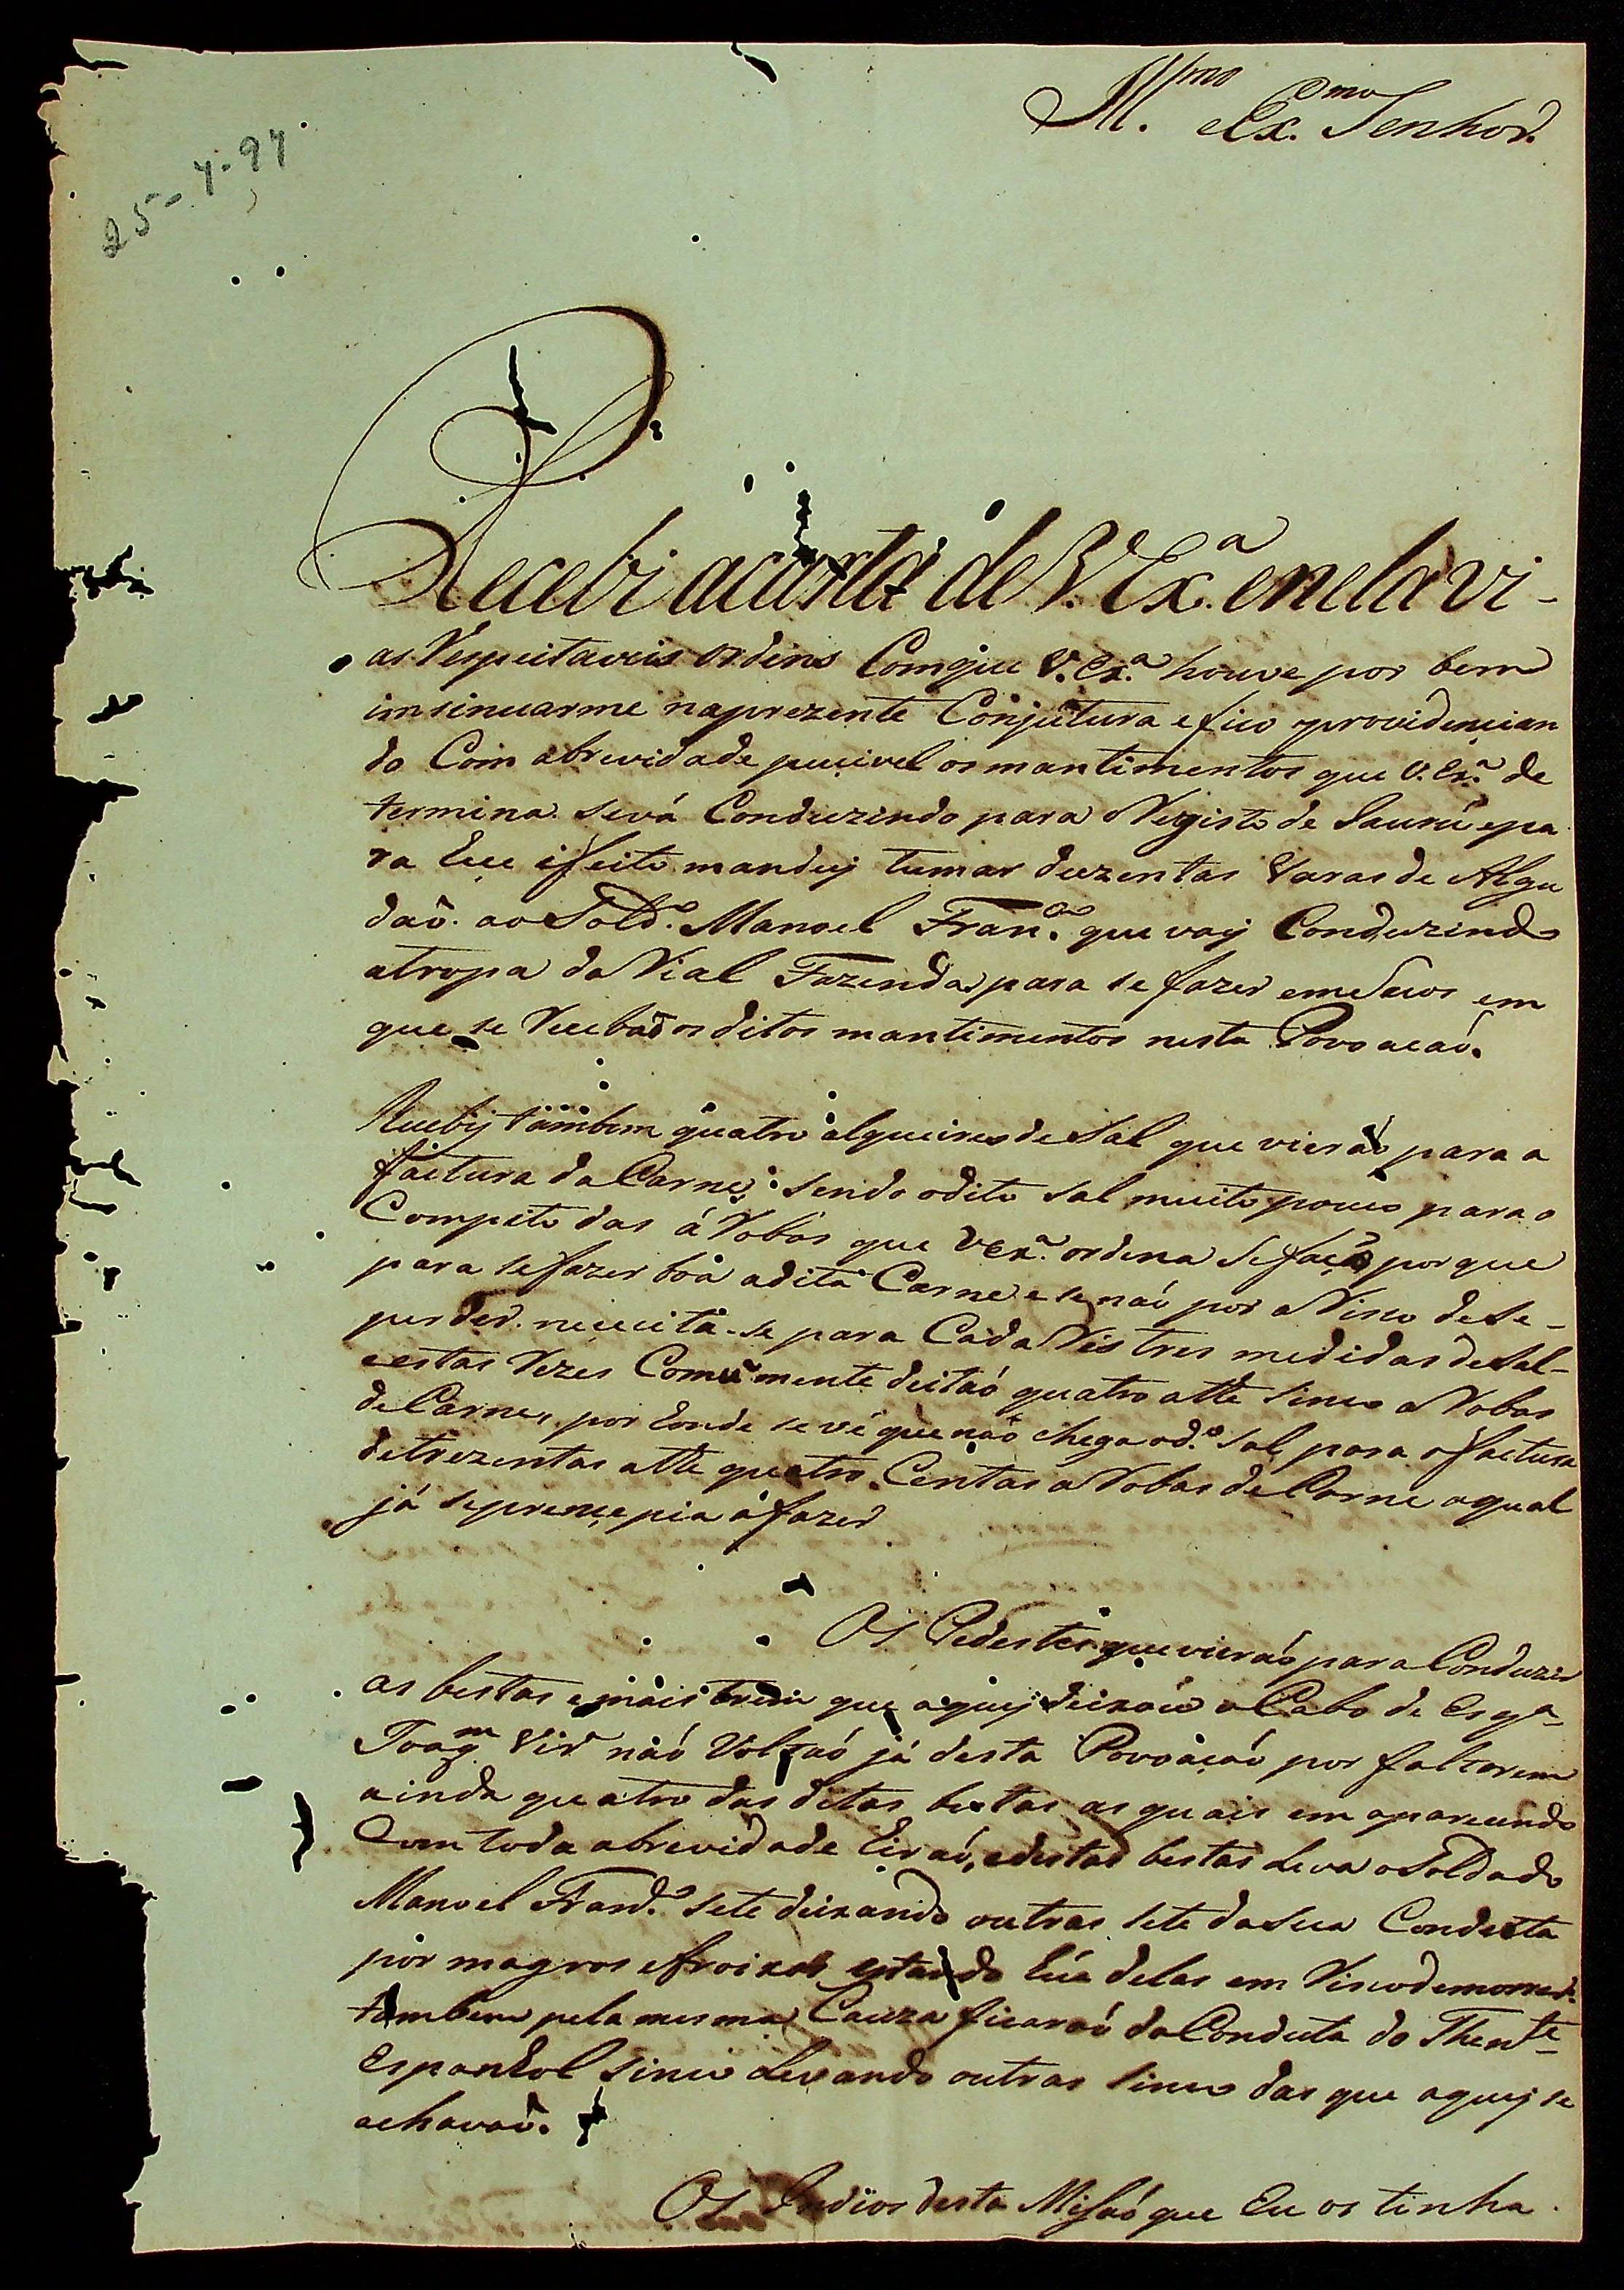 Ill.mo e Ex.mo Senhor.
25-4-97
Recebi acarta de V. Ex.a enela vi-
as Respeitaveis ordens Comque V. Ex.a houve por bem
imsinuarme naprezente Conjutura e fico providencian
do Com abrevidade pucivel os mantimentos que V. Ex.a de
termina. sevá Conduzindo para o Registo de Jaurú epa
ra Eçe ifeito mandej tumar duzentas Varas de Algu
daõ. ao Sold.o Manoel Fran.co que vay Conduzindo
atropa da Rial Fazenda para se fazer em Sacos em
que se Recebaõ os ditos mantimentos nesta Povoacaó.
Recebij tambem quatro alqueires de Sal que vieraó para a
factura da Carne; sendo odito sal muito pouco para o
Compito das áRobas que V Ex.a ordena Sefaça porque
para sefazer boa adita Carne e se naó por a Risco de Se-
perder. necicita-se para Cada Rês tres medidas de Sal-
eestas Rezes Comũmente deitaó quatro atte sinco aRobas
de Carne, por Eonde se vê que naõ chega od.o sal para afactura
detrezentas atte quatro Centas aRobas de Carne aqual
já seprencepia áfazer
Os Pedestes que vieraó para Conduzir
as bestas emais trem que aquij deixou o Cabo de Esq.a
Joaq.m Vir.a naó Voltaó já desta Povoaçaó por faltarem
ainda quatro das ditas bestas as quais em aparecendo
Com toda abrevidade Eiraó, edestas bestas Leva o Soldado
Manoel Fran.co sete deixando outras sete dasua Conduta
por magros efroixos estando Eũa delas em Risco de morrer.
tambem pela mesma Cauza ficaraó da Conduta do Then.te
Espanhol sinco Levando outras sinco das que aquij se
achavaõ.
Os Indios desta Misaó que Eu os tinha